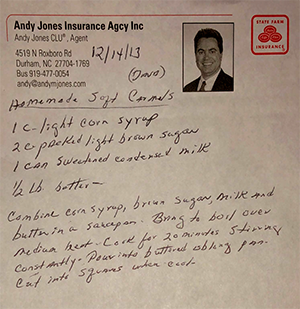 Andy Jones Insurance Agcy Inc
Andy Jones CLU®, Agent
4519 N Roxboro Rd
Durham, NC 27704-1769
Bus 919-477-0054
andy@andymjones.com
STATE FARM
INSURANCE
12/14/13
(David)
Homemade Soft Carmels
1 c-light corn syrup
2 c-packed light brown sugar
1 can sweetened condensed milk
1/2 lb butter-
Combine corn syrup, brown sugar, milk and
butter in a sarcepan. Bring to boil over
medium heat- Cook for 20 minutes stirring
constantly- Pour into buttered oblong pan.
Cut into squares when cool-